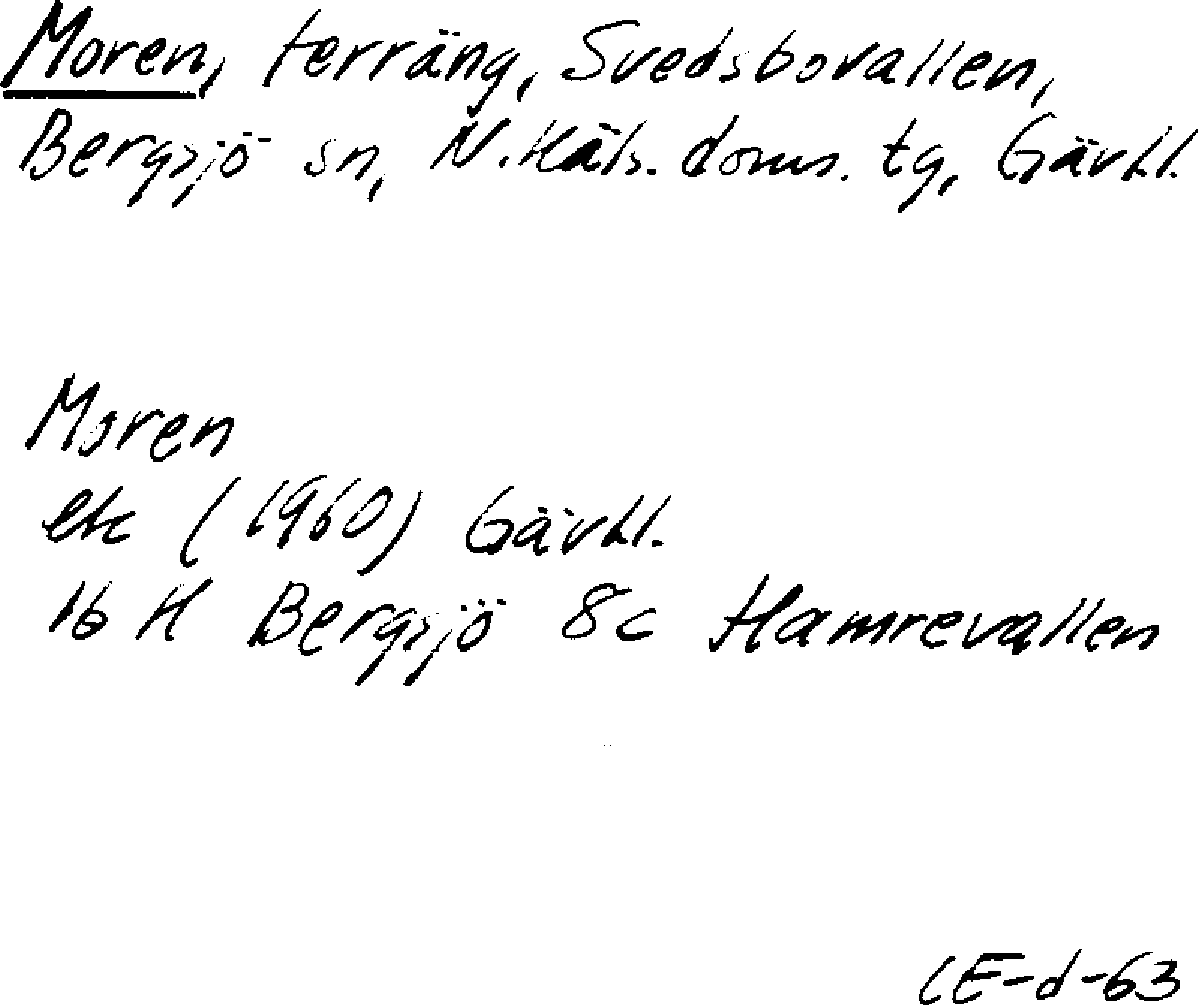 Moren, terräng, Svedsbovallen,
Bergsjö sn, N. Häls. doms. tg, Gävl.l.
Moren
ek (1960) Gävl.l.
16 H Bergsjö 8c Hamrevallen
CE-d-63